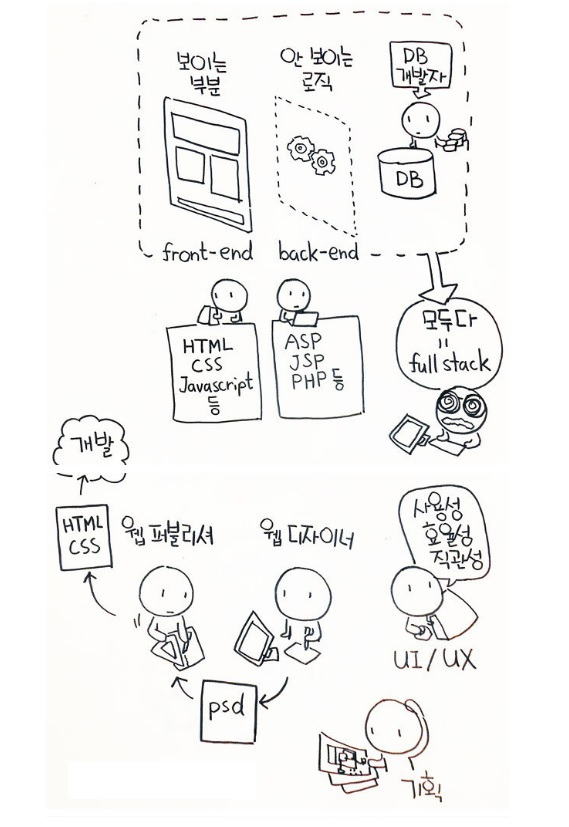 보이는
부분
안 보이는
로직
DB
개발자
DB
front-end
back-end
HTML
CSS
Javascript
등
ASP
JSP
PHP 등
모두다
=
full stack
개발
HTML
CSS
웹 퍼블리셔
웹 디자이너
psd
사용성
효율성
직관성
UI/UX
기획